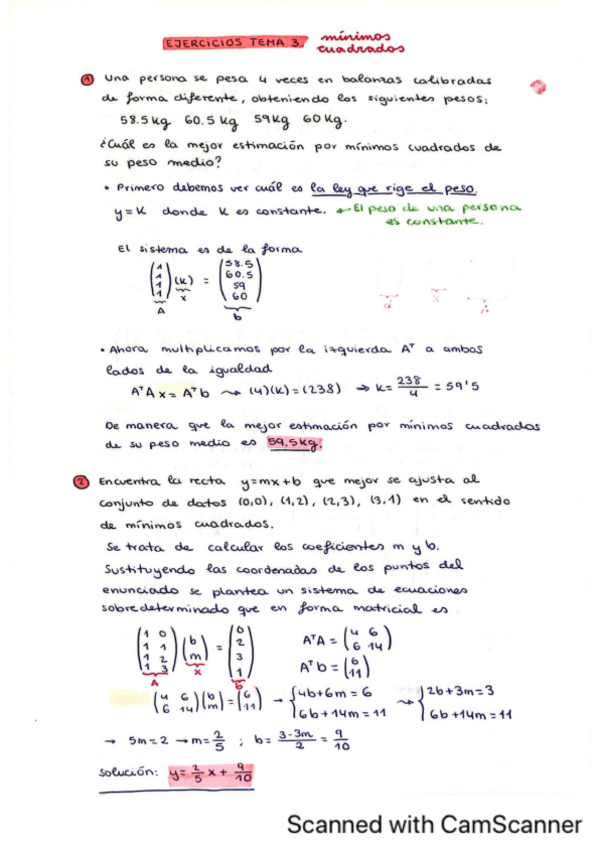 EJERCICIOS TEMA 3. mínimos cuadrados
① Una persona se pesa 4 veces en balanzas calibradas
de forma diferente, obteniendo los siguientes pesos:
58.5 kg 60.5 kg 59 kg 60 kg.
¿Cuál es la mejor estimación por mínimos cuadrados de
su peso medio?
• Primero debemos ver cuál es la ley que rige el peso.
y = K donde K es constante. ← El peso de una persona
es constante.
El sistema es de la forma
(1 1 1 1) (K) = (58.5 60.5 59 60)
A x b
• Ahora multiplicamos por la izquierda Aᵀ a ambos
lados de la igualdad
AᵀA x = Aᵀb ⇝ (4)(K) = (238) → K = 238/4 = 59'5
De manera que la mejor estimación por mínimos cuadrados
de su peso medio es 59.5 kg.
② Encuentra la recta y=mx+b que mejor se ajusta al
conjunto de datos (0,0), (1,2), (2,3), (3,1) en el sentido
de mínimos cuadrados.
Se trata de calcular los coeficientes m y b.
Sustituyendo las coordenadas de los puntos del
enunciado se plantea un sistema de ecuaciones
sobredeterminado que en forma matricial es
(1 0
1 1
1 2
1 3) (b m) = (0 2 3 1) AᵀA = (4 6
6 14)
A x b Aᵀb = (6 11)
(4 6
6 14) (b m) = (6 11) → {4b+6m = 6
6b+14m = 11 ⇝ {2b+3m = 3
6b+14m = 11
→ 5m = 2 → m = 2/5 ; b = 3-3m/2 = 9/10
Solución: y = 2/5 x + 9/10
Scanned with CamScanner